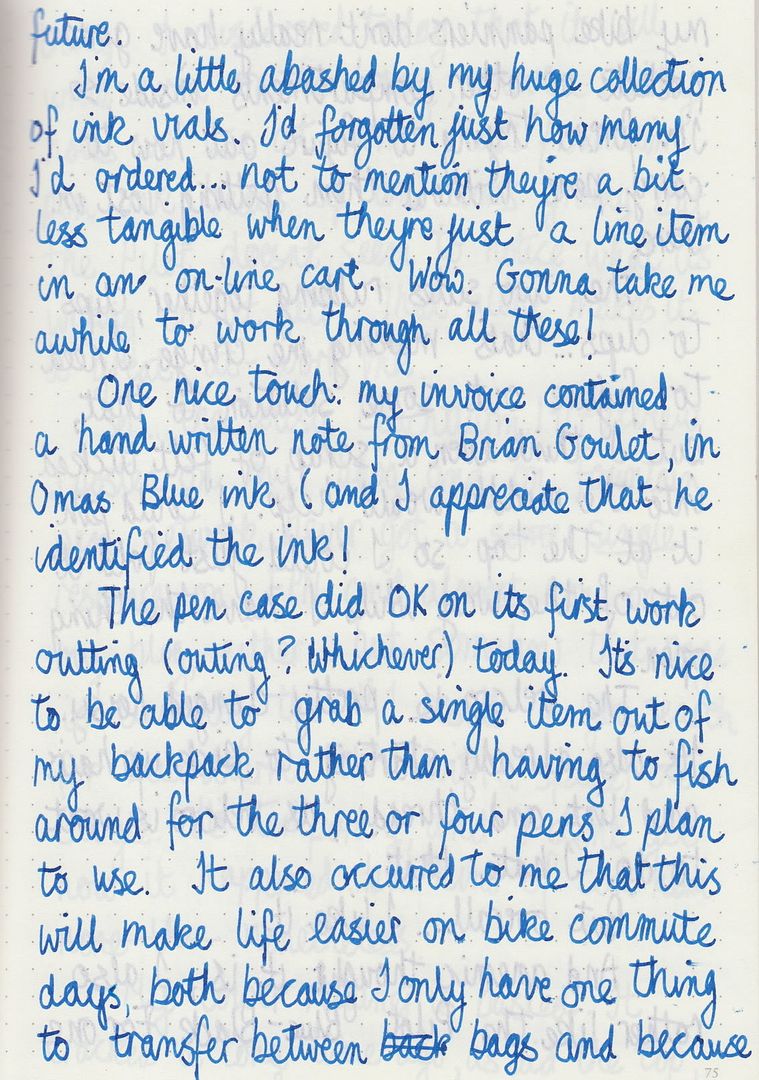 future.
I'm a little abashed by my huge collection
of ink vials. I'd forgotten just how many
I'd ordered... not to mention they're a bit
less tangible when they're just a line item
in an on-line cart. Wow. Gonna take me
awhile to work through all these!
One nice touch: my invoice contained
a hand written note from Brian Goulet, in
Omas Blue ink (and I appreciate that he
identified the ink!
The pen case did OK on its first work
outting (outing? Whichever) today. It's nice
to be able to grab a single item out of
my backpack rather than having to fish
around for the three or four pens I plan
to use. It also occurred to me that this
will make life easier on bike commute
days, both because I only have one thing
to transfer between back bags and because
75